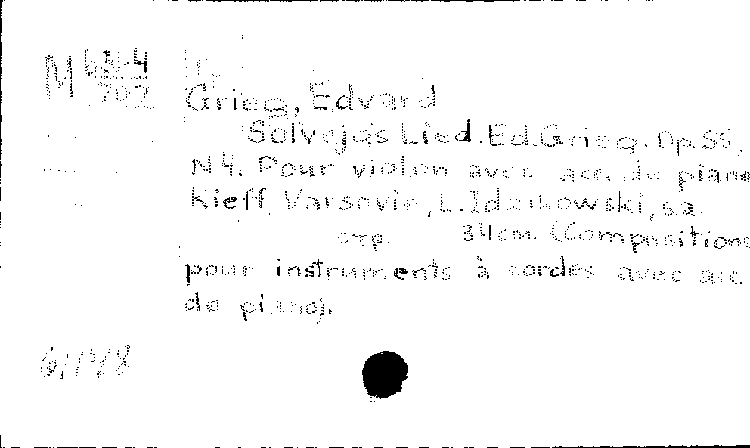 M 631-4
702
Grieg, Edvard
Solvejgs Lied. Ed. Grieg. Op. 55,
N 4. Pour violon avec acc. de piano
Kieff, Varsovie, L. Idzikowski, s.a.
стр. 34cm. (Compositions
pour instruments à cordes avec acc
de piano).